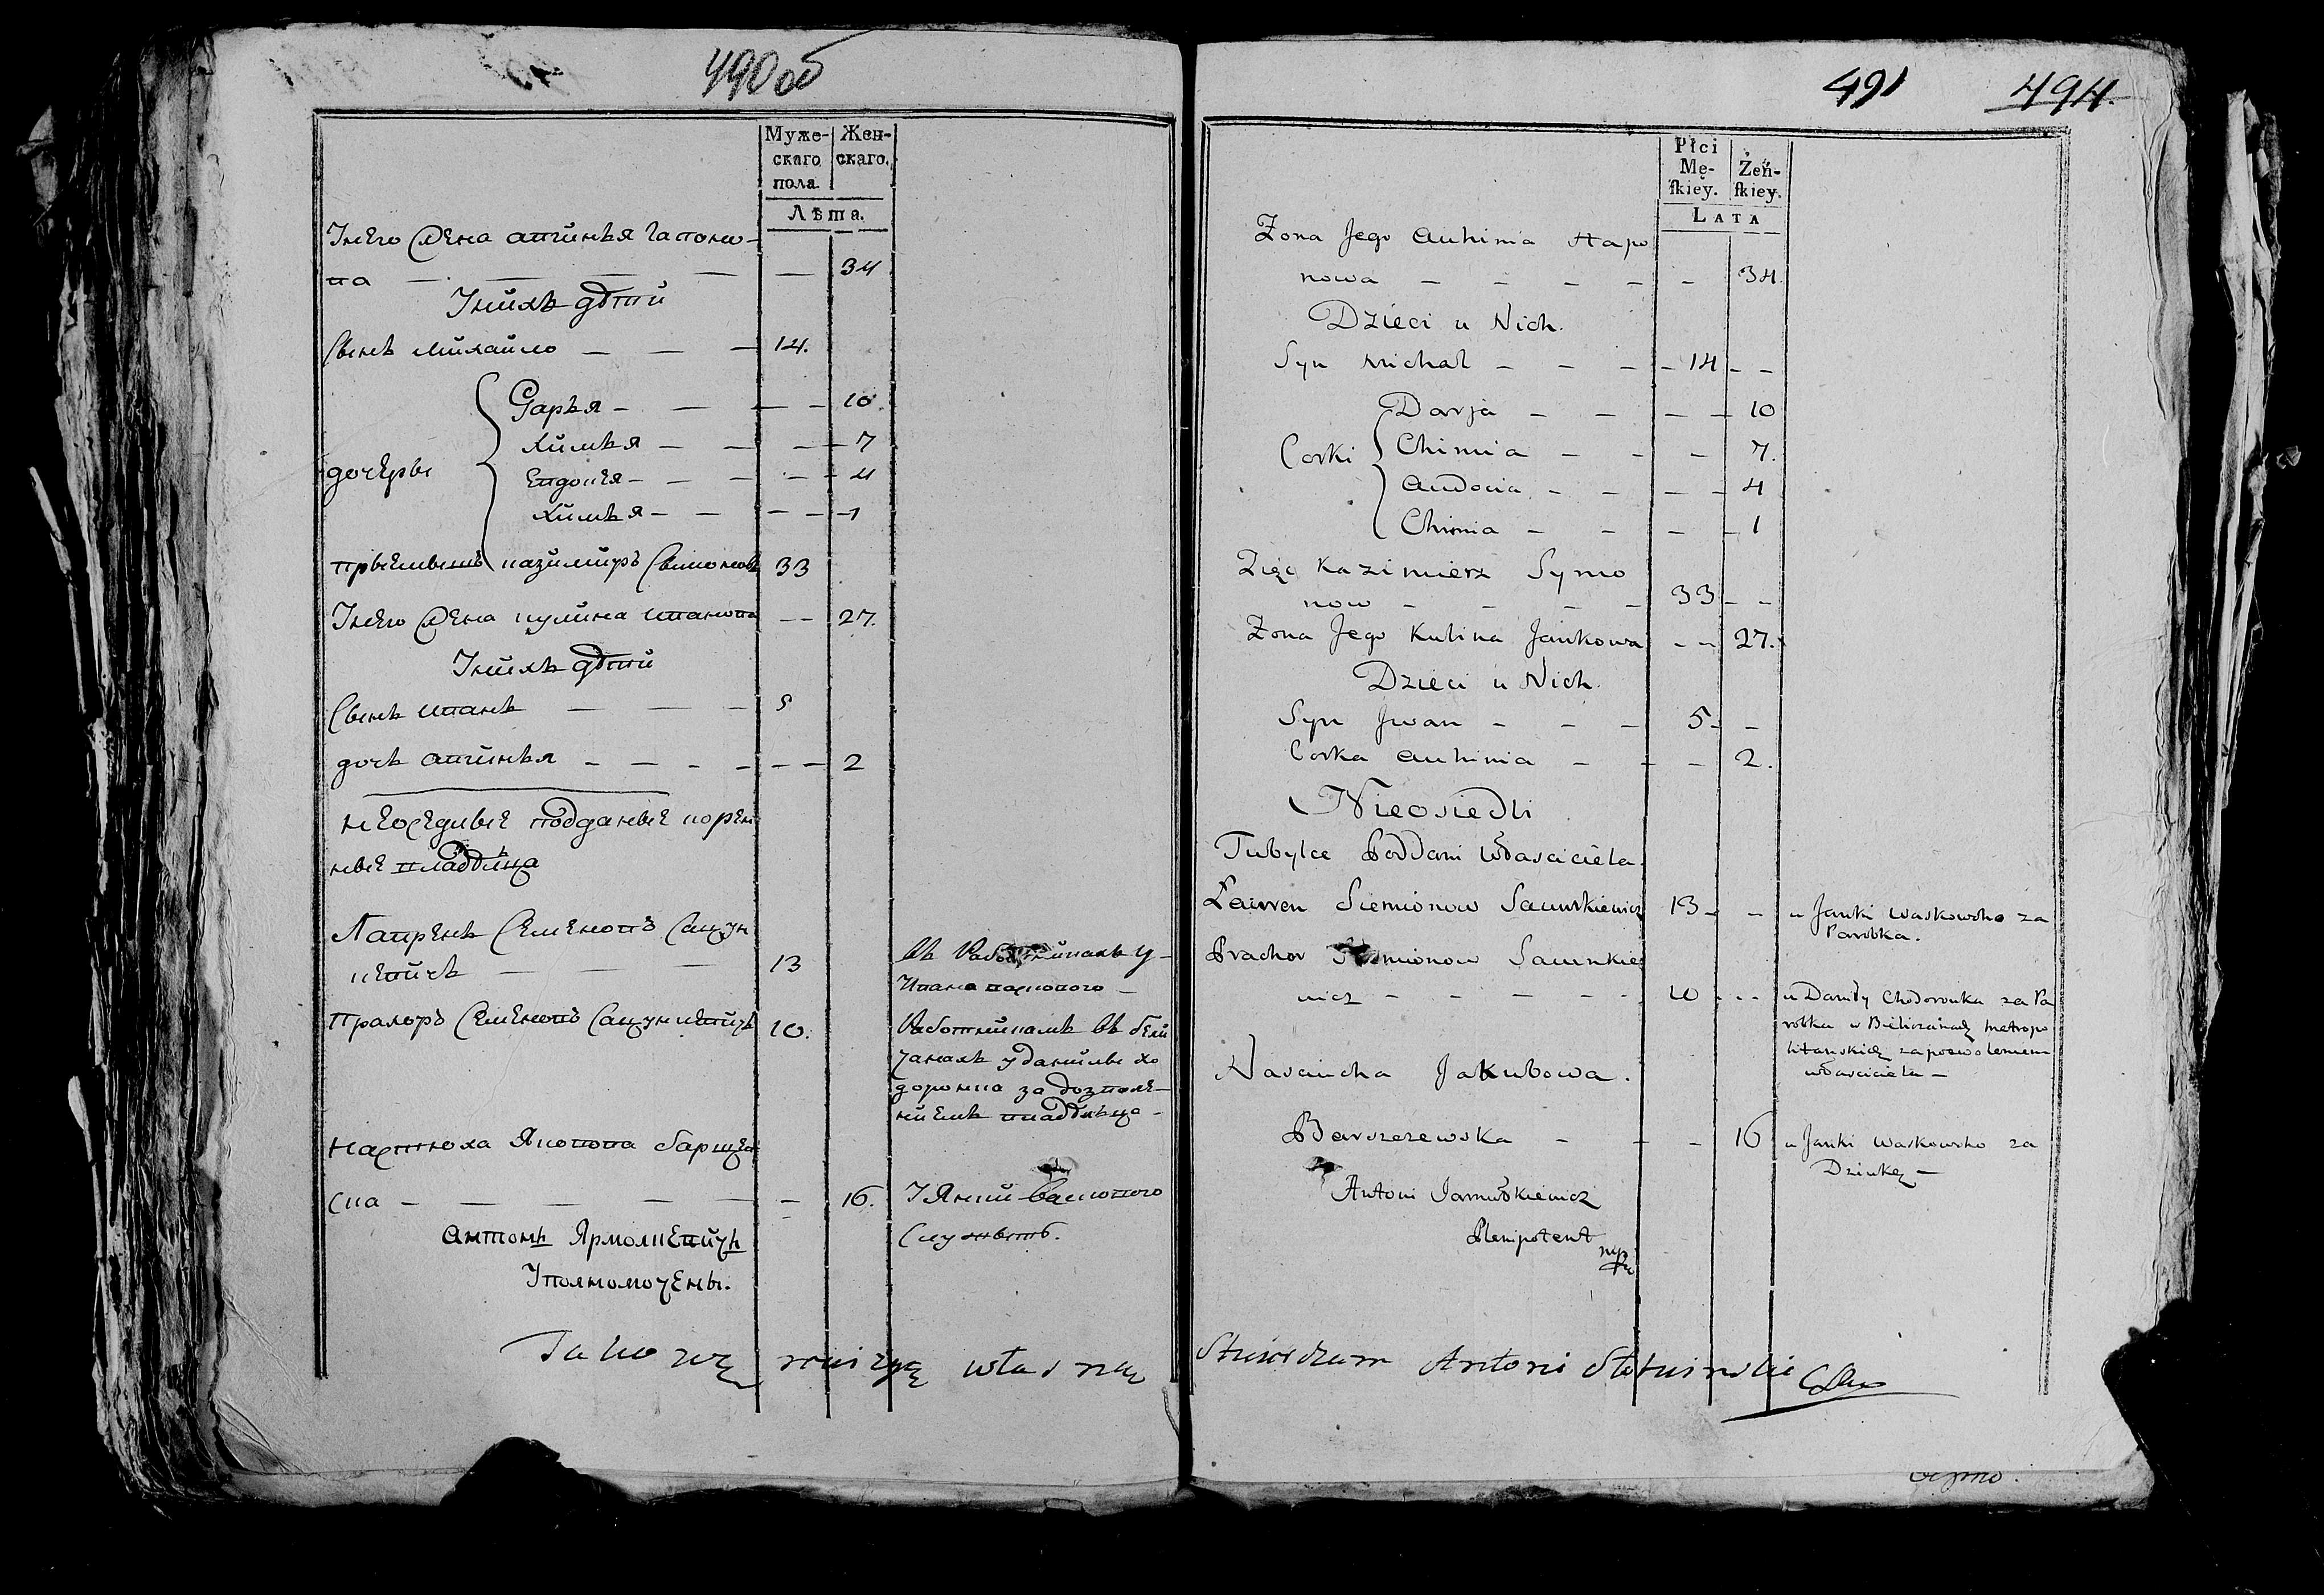 490 об
Муже- Жен-
скаго скаго.
пола.
Лѣта.
Унего жена авгинья гапоно-
ва — — — — — 34
Унихъ дѣти
Сынъ михайло — — — 14.
Дарья — — — — 10
химья — — — — 7
дочеры
Евдокея — — — — 4
химья — — — — 1
прыемышъ казимиръ Сымоновъ 33
Унего жена кулина иванова — — 27.
Унихъ дѣти
Сынъ иванъ — — — 5
дочъ авгинья — — — — — — 2
неоседлые подданые корен
ные владѣлца
Лавренъ Семеновъ Сацун
кевичъ — — — 13
въ работникахъ у
Ивана васкового —
Прахоръ Семеновъ Сацункевичъ 10.
работникамъ въ бели
чанахъ у данилы хо
доронка за дозволе-
ниемъ владѣльца —
настюха Якопова барщев
ска — — — — — — 16.
У Янки васкового
служыть.
антонъ Ярмолкевичъ
Уполномочены.
491 494.
Płci
Mę- Żeń-
ſkiey. ſkiey.
LATA
Zona Jego Auhinia Hapo
nowa — — — — — 34.
Dzieci u Nich.
Syn Michał — — — — 14 — —
Darja — — — — 10
Corki Chimia — — — 7.
Audocia — — — — 4
Chimia — — — — 1
Zięc Kazimierz Symo
now — — — — 33 — —
Zona Jego Kulina Jankowa — — 27.
Dzieci u Nich.
Syn Jwan — — — 5 — —
Corka Auhinia — — — 2.
Nieosiedli
Tubylce Poddani Własciciela.
Ławren Siemionow Saunkiewicz 13 — — u Janki Waskowsko za
Parobka.
Prachor Siemionow Saunkie
wicz — — — — — 10 — — u Daniły Chodoronka za Pa
robka w Bieliczanach metropo
litanskich za pozwoleniem
własciciela —
Nasciucha Jakubowa.
Barszczewska — — — 16 u Janki Waskowsko za
Dziewkę —
Antoni Jarmołkiewicz
Plenipotent
mp
Takowę rewizyę własną
Stwierdzam Antoni